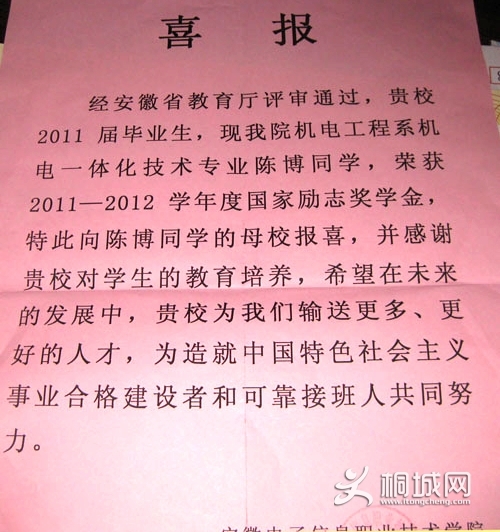 喜报
经安徽省教育厅评审通过，贵校
2011 届毕业生，现我院机电工程系机
电一体化技术专业陈博同学，荣获
2011—2012 学年度国家励志奖学金，
特此向陈博同学的母校报喜，并感谢
贵校对学生的教育培养，希望在未来
的发展中，贵校为我们输送更多、更
好的人才，为造就中国特色社会主义
事业合格建设者和可靠接班人共同努
力。
桐城网
www.itongcheng.com
安徽电子信息职业技术学院